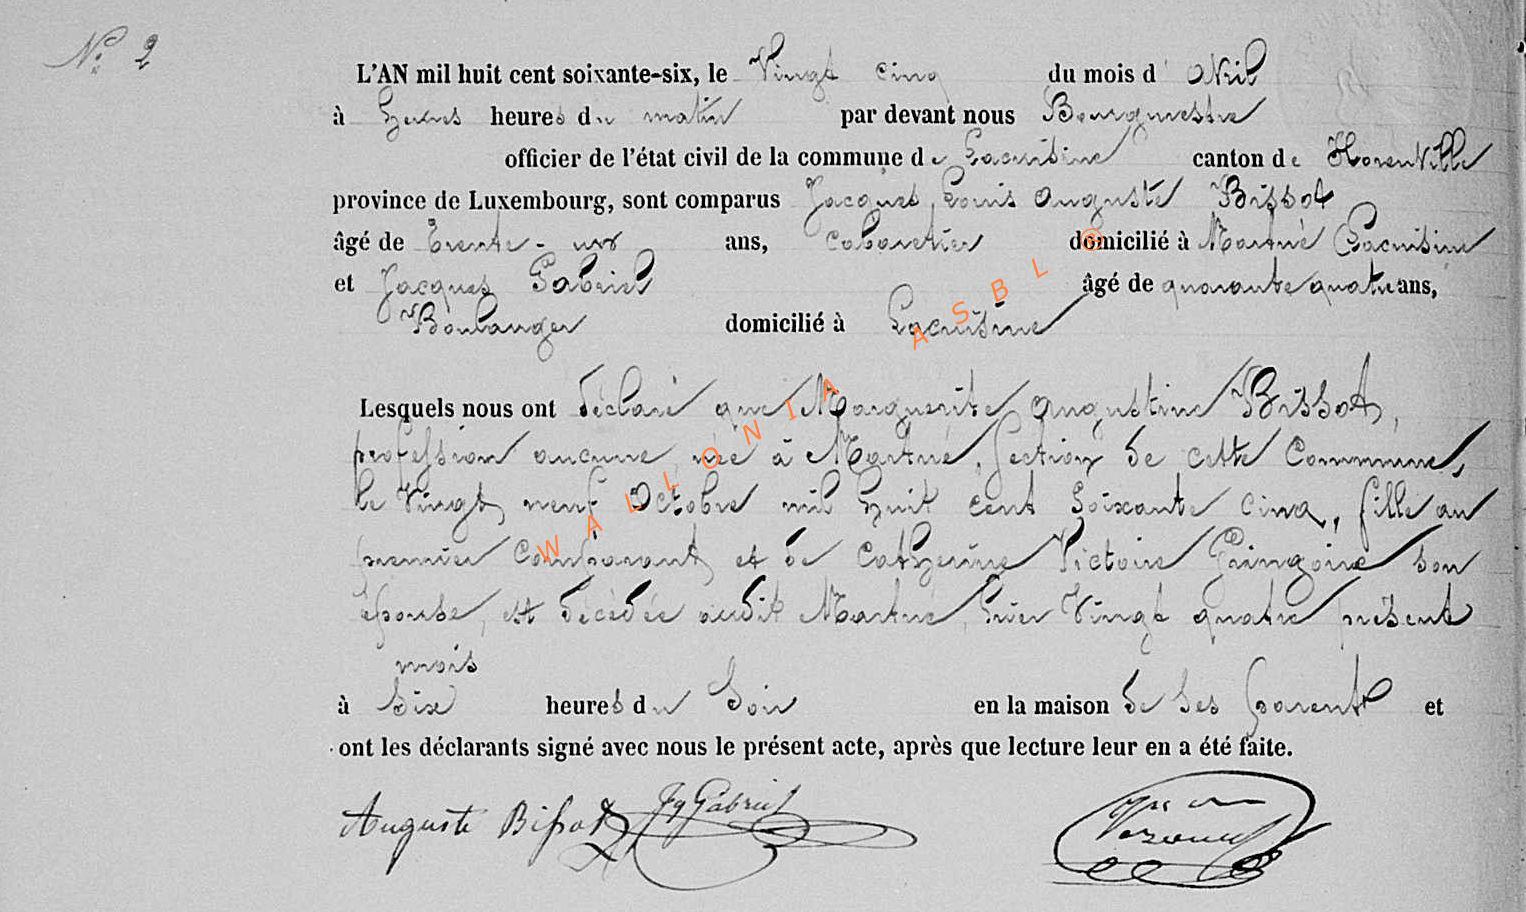 N° 2
L'AN mil huit cent soixante-six, le Vingt cinq du mois d' Avril
à heures du matin par devant nous Bourgmestre
officier de l'état civil de la commune de Lacuisine canton de Florenville
province de Luxembourg, sont comparus Jacques Louis Auguste Bissot
âgé de trente-un ans, cabaretier domicilié à Martué Lacuisine
et Jacques Gabriel âgé de quarante quatre ans,
Boulanger domicilié à Lacuisine
Lesquels nous ont déclaré que Marguerite Augustine Bissot,
profession aucune, née à Martué, section de cette Commune,
le Vingt neuf Octobre mil huit cent soixante cinq, fille au
premier comparant et de Catherine Victoire Gringoire son
épouse, est décédée audit Martué, hier Vingt quatre présent
mois
à Six heures du Soir en la maison de ses parents et
ont les déclarants signé avec nous le présent acte, après que lecture leur en a été faite.
Auguste Bissot Jq Gabriel
WALLONIA ASBL ®